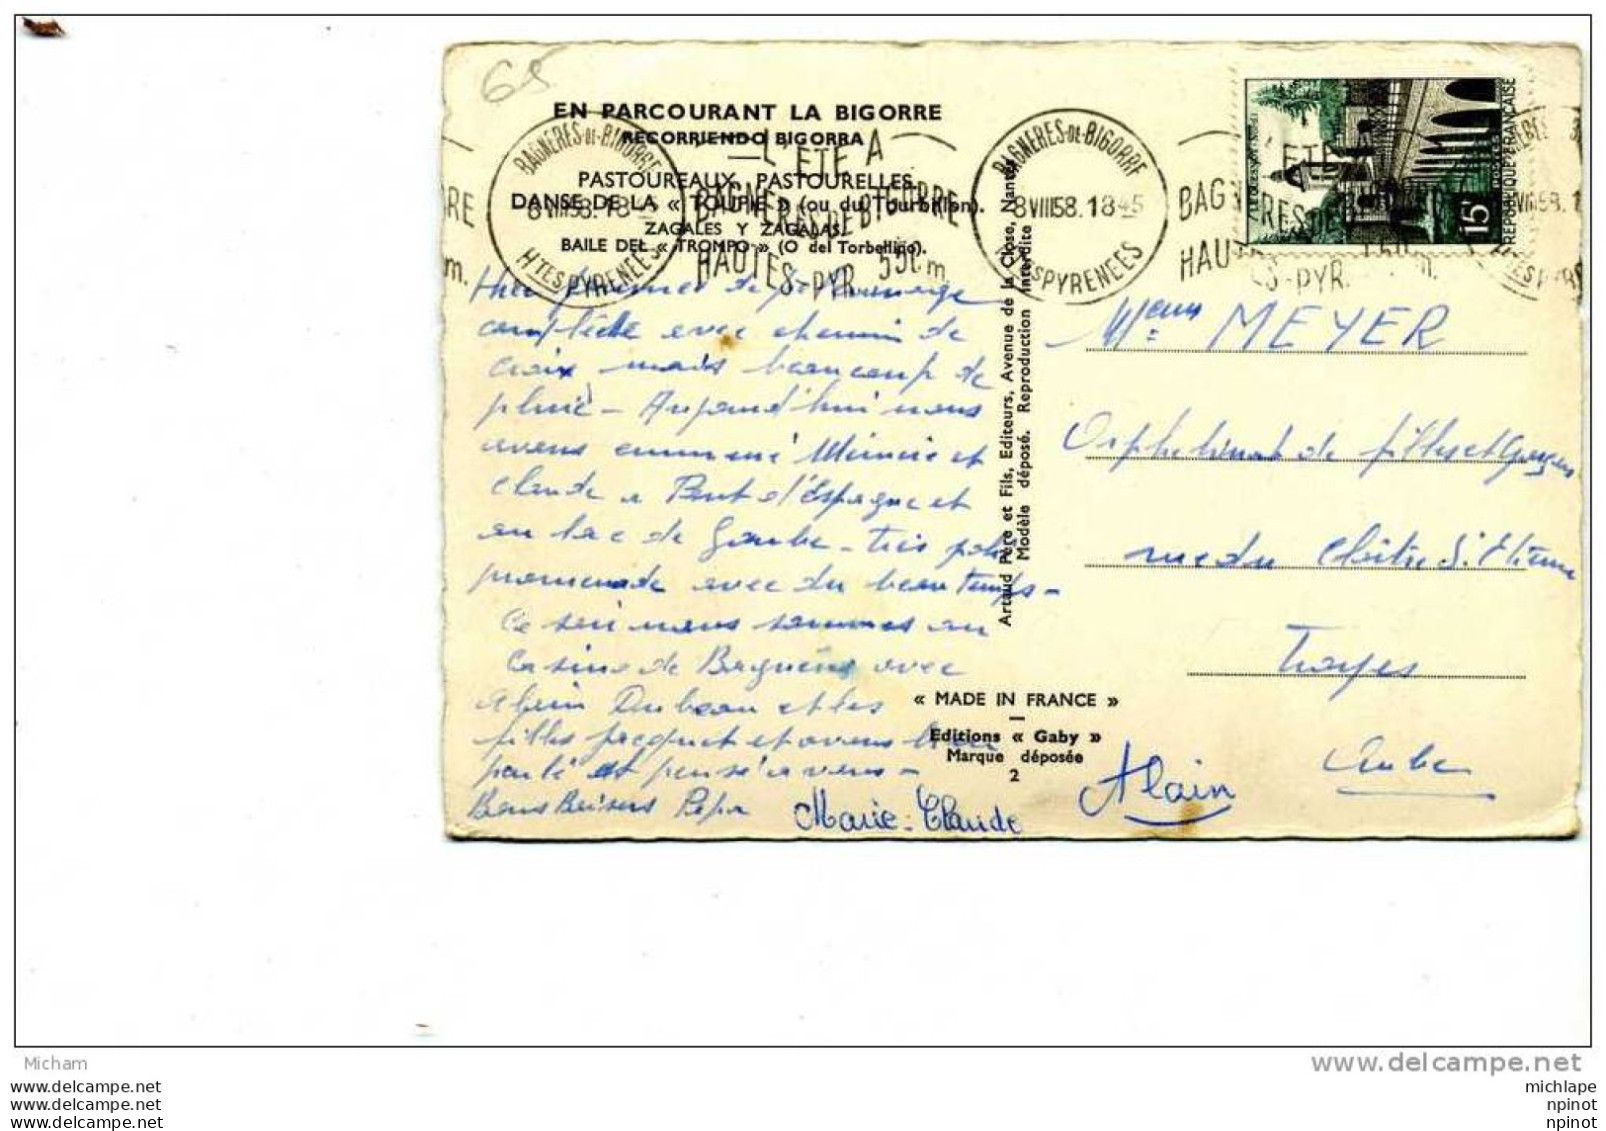 65
EN PARCOURANT LA BIGORRE
RECORRIENDO BIGORRA
PASTOUREAUX, PASTOURELLES.
DANSE DE LA « TOUPIE » (ou du Tourbillon).
ZAGALES Y ZAGALAS.
BAILE DEL « TROMPO » (O del Torbellino).
BAGNERES-DE-BIGORRE
8 VIII 58. 18-
HTES PYRENEES
L'ETE A
BAGNERES DE BIGORRE
HAUTES-PYR. 550m.
BAGNERES-DE-BIGORRE
8 VIII 58. 18 45
HTES PYRENEES
15F
REPUBLIQUE FRANÇAISE
Hier
complète avec chemin de
croix mais beaucoup de
pluie - Aujourd'hui nous
avons emmené et
Claude a Pont d'Espagne et
au lac de Gaube - très jolie
promenade avec du beau temps -
Ce soir nous sommes au
Casino de Bagnères avec
Alain Dubeau et les
filles Jacquet et avons bien
parlé et pensé a vous -
Bons Baisers
Marie-Claude
Alain
Artaud Père et Fils, Editeurs, Avenue de la Close, Nantes
Modèle déposé. Reproduction interdite
« MADE IN FRANCE »
Editions « Gaby »
Marque déposée
2
MEYER
Orphelinat de filles et Garçons
rue du Cloître St Etienne
Troyes
Aube
Micham
www.delcampe.net
www.delcampe.net
www.delcampe.net
www.delcampe.net
michlape
npinot
npinot